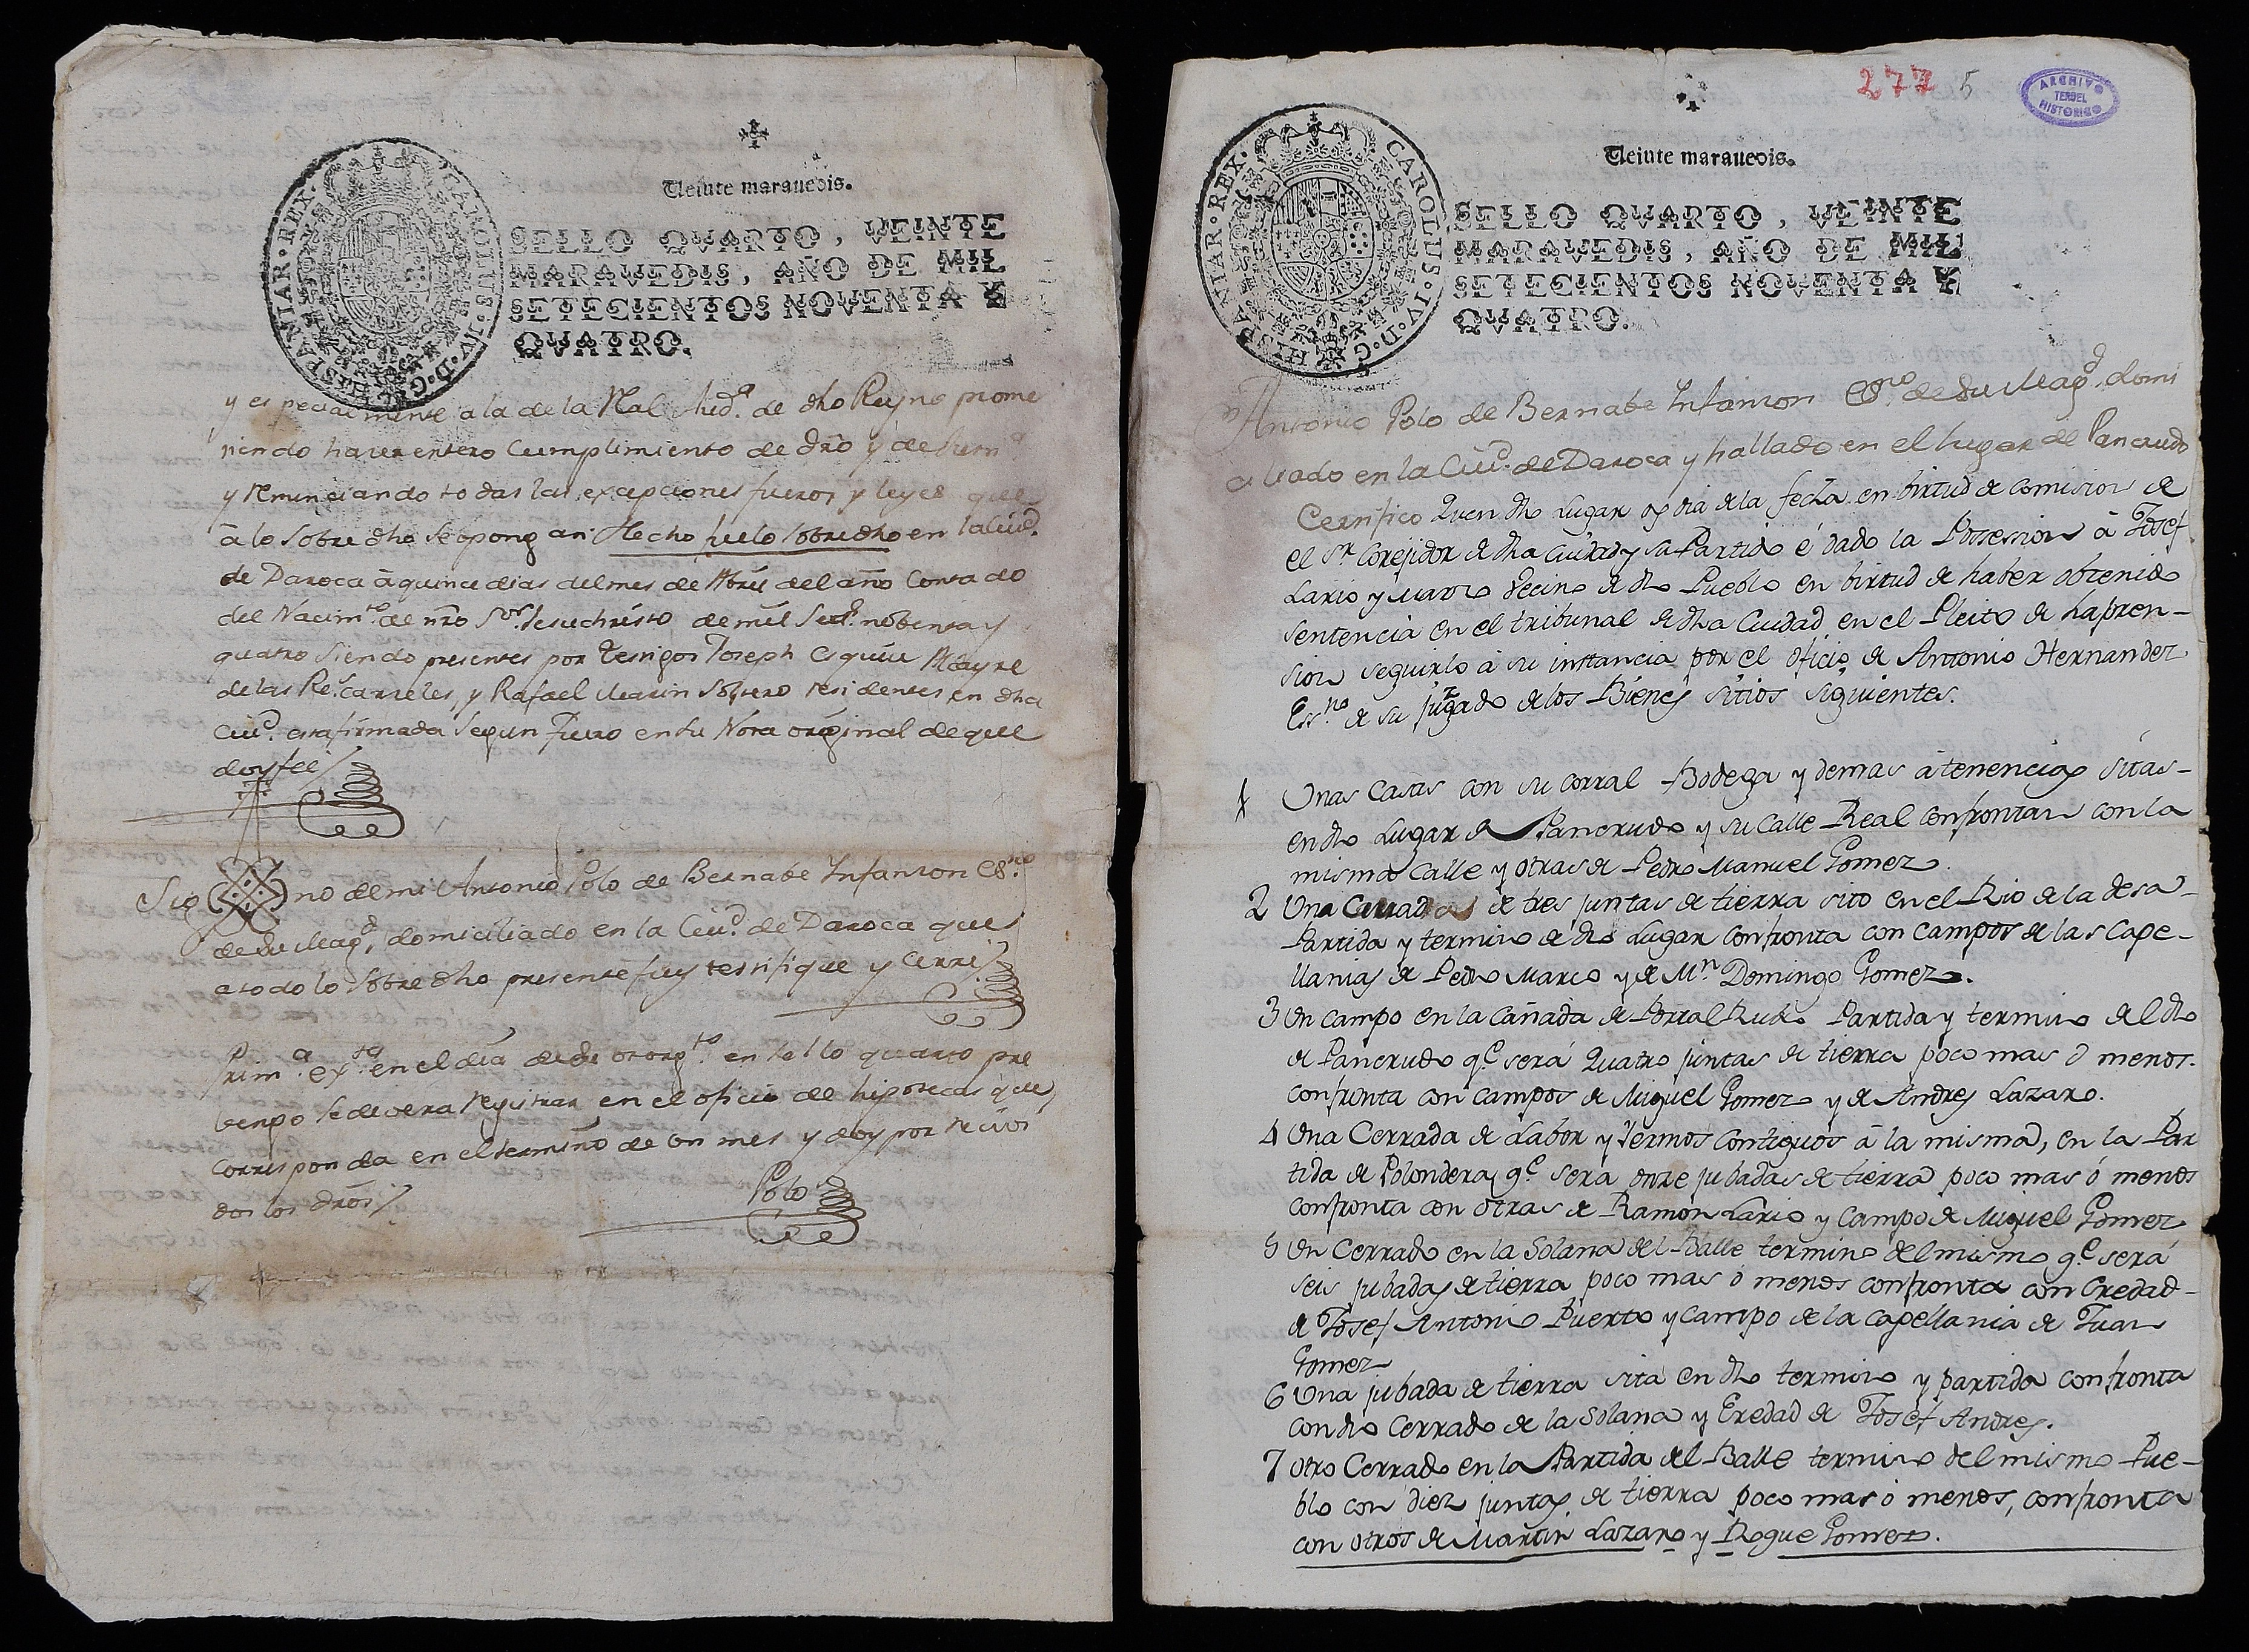 Veinte marauedis.
HISPANIAR. REX. CAROLUS. IV. D. G.
SELLO QVARTO, VEINTE
MARAVEDIS, AÑO DE MIL
SETECIENTOS NOVENTA Y
QVATRO.
y especialmente a la de la Rl Aud.a de dho Reyno prome
tiendo haver entero Cumplimiento de dro y de
y renunciando todas las excepciones fueros y leyes que
â lo sobre dho se opongan Hecho fue lo sobre dho en la Ciud.
de Daroca â quince dias del mes de Abril del año Contado
del Nacim.to de nro S.or Jesuchristo de mil Set.s nobenta y
quatro siendo presentes por testigos Joseph Esquiu Alcayde
de las R.s Carzeles, y Rafael Marin Soltero residentes en dha
Ciud. esta firmada segun Fuero en su Nota original de que
doy fee
Sig no de mi Antonio Polo de Bernabe Infanzon Es.no
de Su Mag.d, domiciliado en la Ciud. de Daroca que
a todo lo sobre dho presente fuy testifique y Cerre
Prim.a ex.ta en el dia de su otorg.to en sello quarto pre
bengo se devera registrar en el oficio de hipotecas que
corresponda en el termino de un mes y doy por recivi
dos los dros
Polo
277 5
ARCHIVO
TERUEL
HISTORICO
Veinte marauedis.
HISPANIAR. REX. CAROLUS. IV. D. G.
SELLO QVARTO, VEINTE
MARAVEDIS, AÑO DE MIL
SETECIENTOS NOVENTA Y
QVATRO.
Antonio Polo de Bernabe Infanzon Es.no de Su Mag.d domi
ciliado en la Ciud. de Daroca y hallado en el lugar de Pancrudo
Certifico Que en dho Lugar oy dia de la fecha en birtud de comision de
el S.r Corejidor de dha Ciudad y su Partido é dado la Possession â Josef
Lario y Marco Vecino de dho Pueblo en birtud de haber obtenido
sentencia en el tribunal de dha Ciudad en el Pleito de hapren-
sion seguirlo â su instancia por el oficio de Antonio Hernandez
Ess.no de su juzgado de los Bienes sitios siguientes.
1 Unas Casas con su corral Bodega y demas âtenencias sitas-
en dho Lugar de Pancrudo y su Calle Real confrontan con la
misma Calle y otras de Pedro Manuel Gomez.
2 Una Cerrada de tres juntas de tierra sito en el Rio de la desa-
Partida y termino de dho Lugar confronta con campos de las Cape-
llanias de Pedro Marco y de M.n Domingo Gomez.
3 Un campo en la Cañada de Portal Rubio Partida y termino de el dho
de Pancrudo q.e será Quatro juntas de tierra poco mas ô menos.
confronta con campos de Miguel Gomez y de Andres Lazaro.
4 Una Cerrada de Labor y Yermos contiguos â la misma, en la Par
tida de Polondera, q.e será onze jubadas de tierra poco mas ó menos
confronta con otras de Ramon Lario y Campo de Miguel Gomez
5 Un Cerrado en la Solana del Balle termino del mismo q.e será
seis jubadas de tierra poco mas ó menos confronta con Eredad-
de Josef Antonio Puerto y Campo de la Capellania de Juan
Gomez
6 Una jubada de tierra sita en dho termino y partida confronta
con dho Cerrado de la Solana y Eredad de Josef Andres.
7 Otro Cerrado en la Partida del Balle termino del mismo Pue-
blo con diez juntas de tierra poco mas ó menos, confronta
con otros de Martin Lazaro y Roque Gomez.